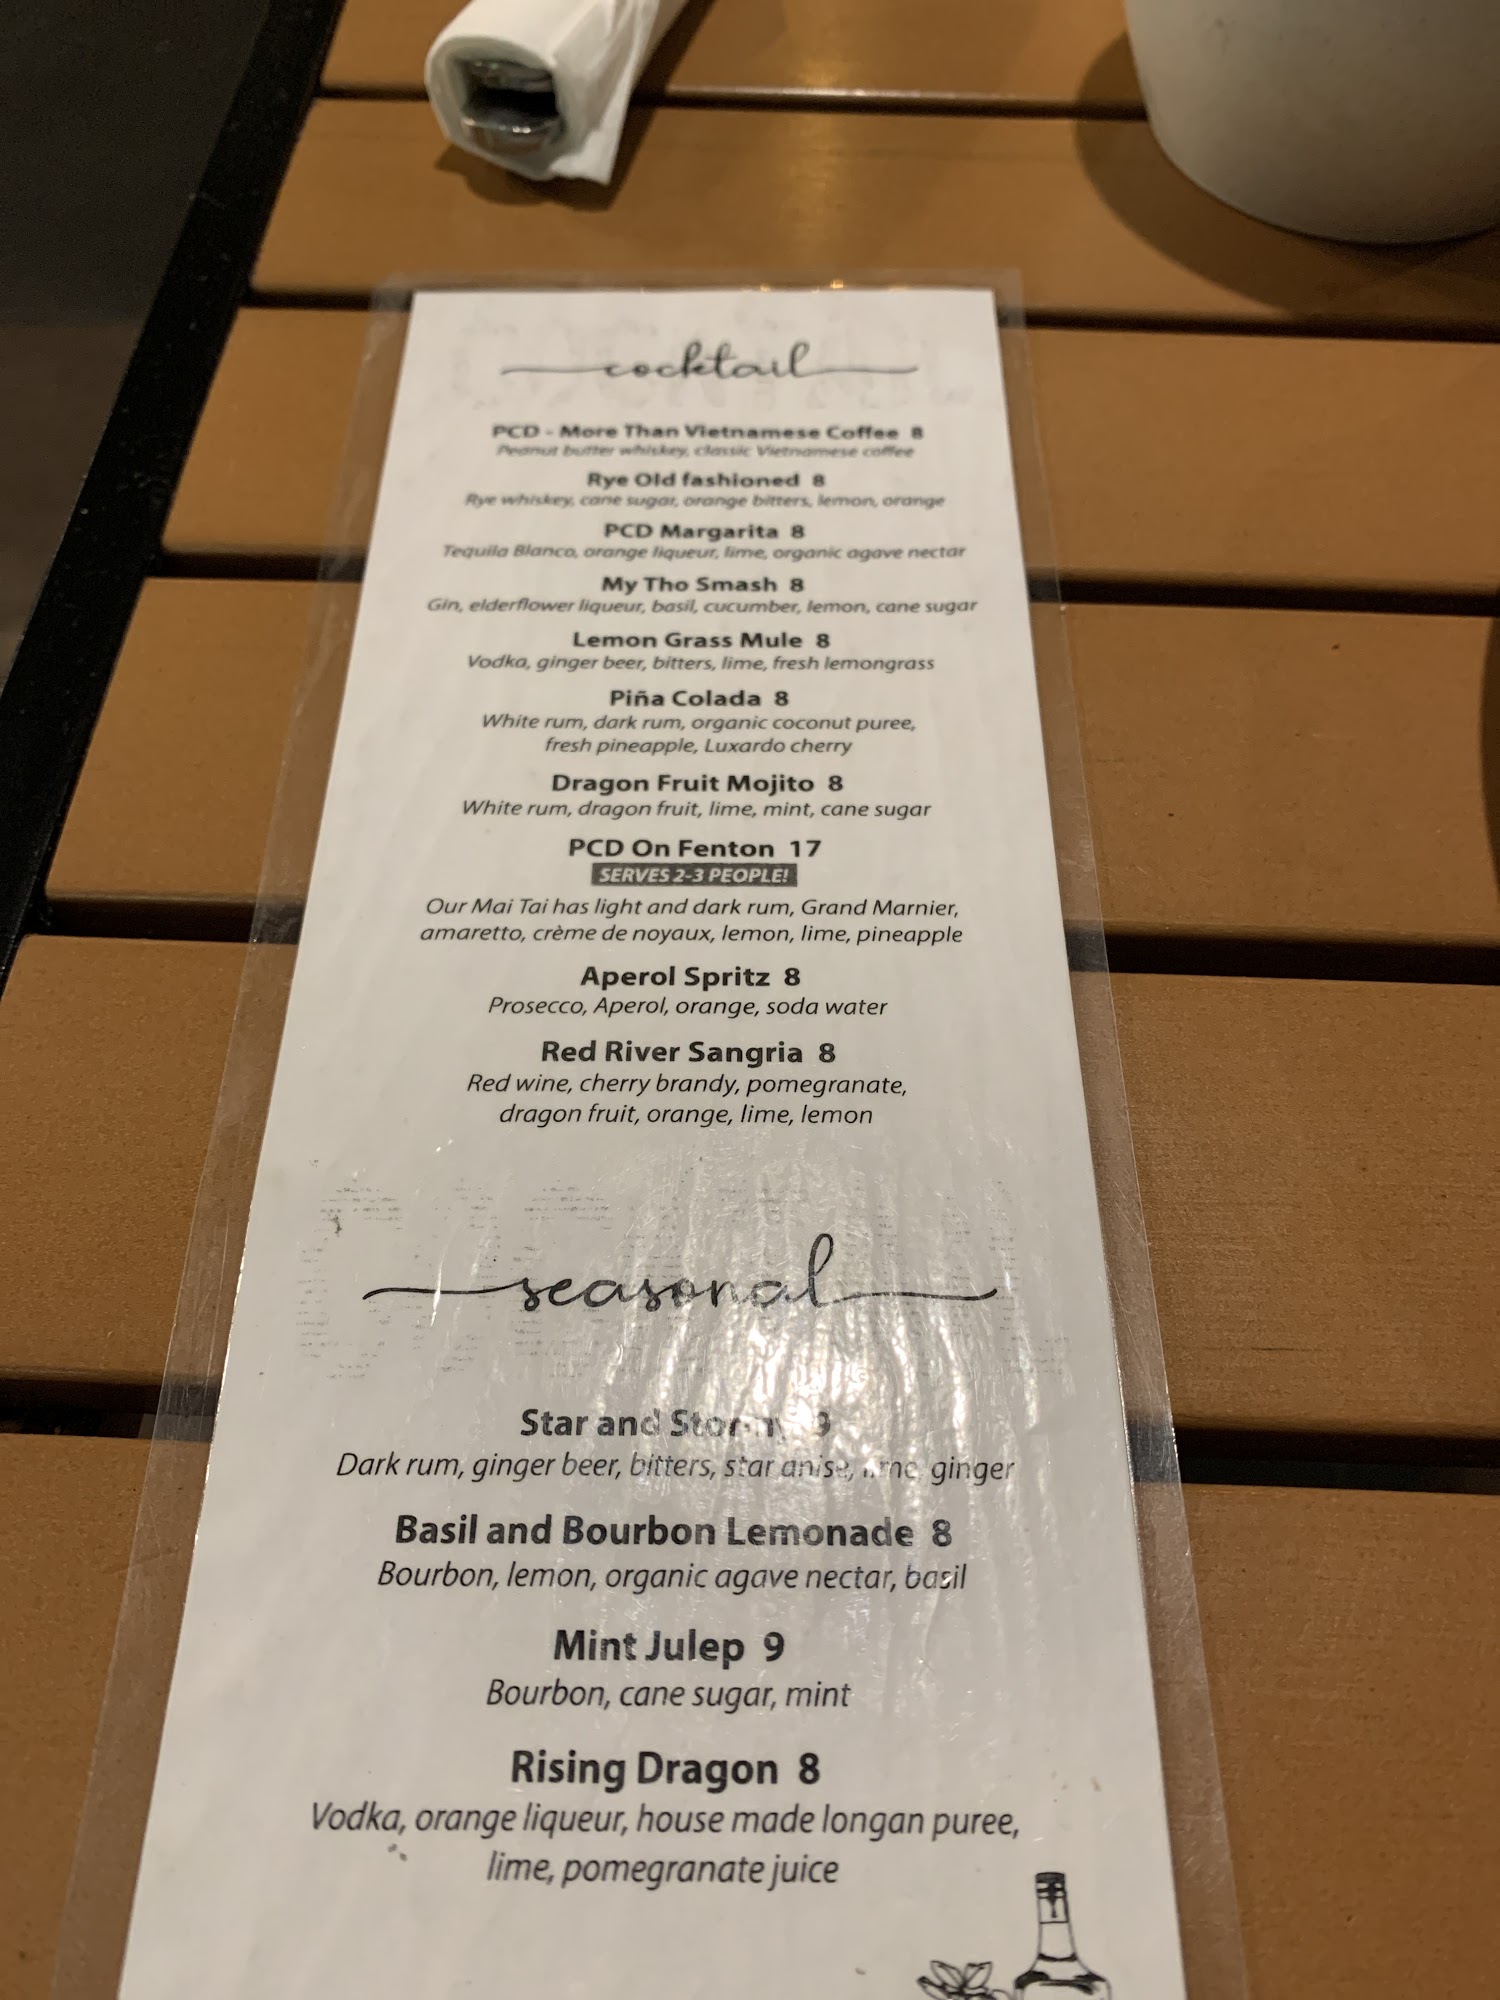 cocktail
PCD - More Than Vietnamese Coffee 8
Peanut butter whiskey, classic Vietnamese coffee
Rye Old fashioned 8
Rye whiskey, cane sugar, orange bitters, lemon, orange
PCD Margarita 8
Tequila Blanco, orange liqueur, lime, organic agave nectar
My Tho Smash 8
Gin, elderflower liqueur, basil, cucumber, lemon, cane sugar
Lemon Grass Mule 8
Vodka, ginger beer, bitters, lime, fresh lemongrass
Piña Colada 8
White rum, dark rum, organic coconut puree,
fresh pineapple, Luxardo cherry
Dragon Fruit Mojito 8
White rum, dragon fruit, lime, mint, cane sugar
PCD On Fenton 17
SERVES 2-3 PEOPLE!
Our Mai Tai has light and dark rum, Grand Marnier,
amaretto, crème de noyaux, lemon, lime, pineapple
Aperol Spritz 8
Prosecco, Aperol, orange, soda water
Red River Sangria 8
Red wine, cherry brandy, pomegranate,
dragon fruit, orange, lime, lemon
seasonal
Star and Stormy
Dark rum, ginger beer, bitters, star anise, lime, ginger
Basil and Bourbon Lemonade 8
Bourbon, lemon, organic agave nectar, basil
Mint Julep 9
Bourbon, cane sugar, mint
Rising Dragon 8
Vodka, orange liqueur, house made longan puree,
lime, pomegranate juice